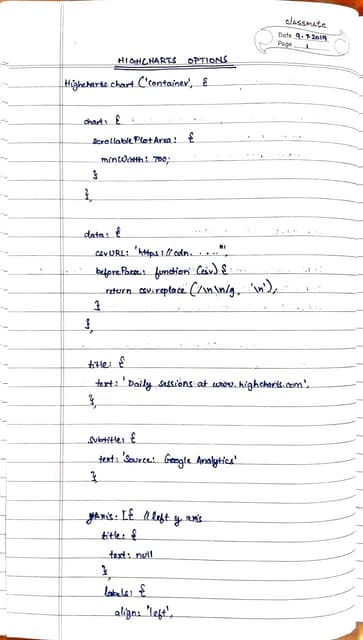 classmate
Date 9.7.2019
Page 1
HIGHCHARTS OPTIONS
Highcharts chart ('container', {
chart: {
scrollablePlotArea: {
minWidth: 700;
}
},
data: {
csvURL: 'https://cdn. ....",
beforeParse: function (csv) {
return csv.replace (/\n\n/g, '\n'),
}
},
title: {
text: 'Daily sessions at www.highcharts.com',
},
subtitle: {
text: 'Source: Google Analytics'
}
yAxis: [{ // left y axis
title: {
text: null
},
labels: {
align: 'left',